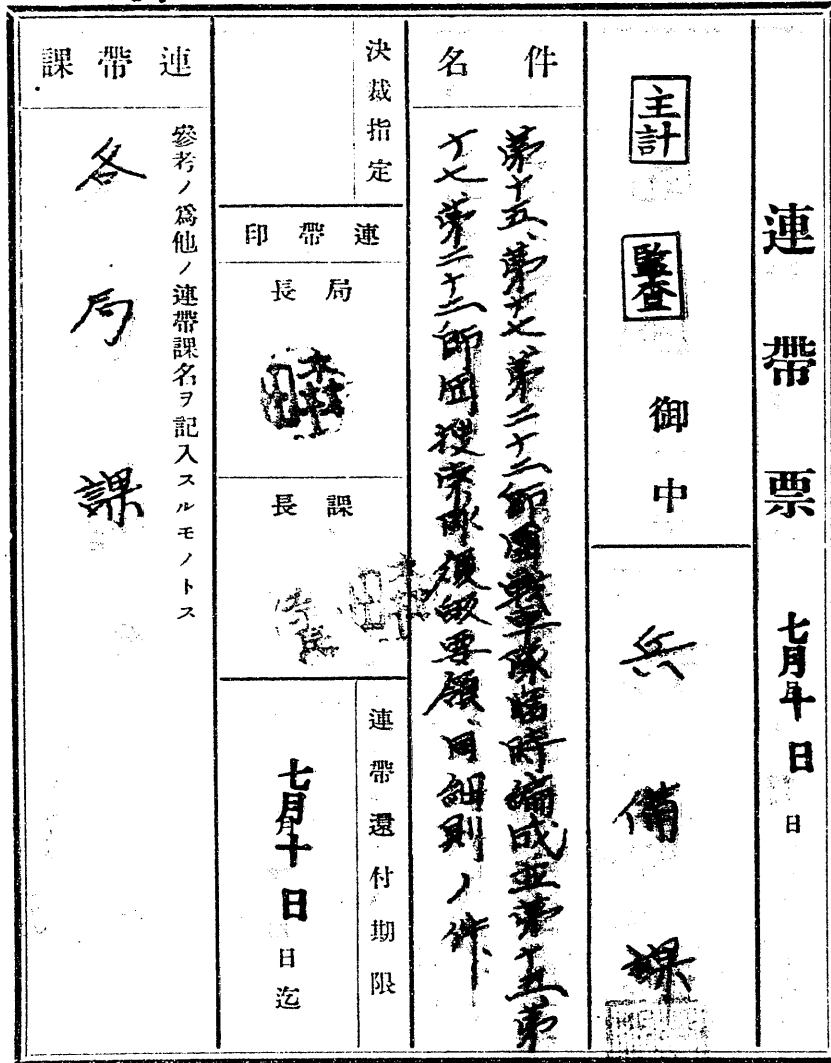 連帶票 七月十日 日
主計 監査 御中
兵備課
件名
第十五、第十七、第二十二師団戦車隊臨時編成並第十五第
十七、第二十二師団捜索隊復帰要領、同細則ノ件
決裁指定
連帶印
局長
課長
連帶還付期限
七月十日 日迄
連帶課
參考ノ爲他ノ連帶課名ヲ記入スルモノトス
各局課